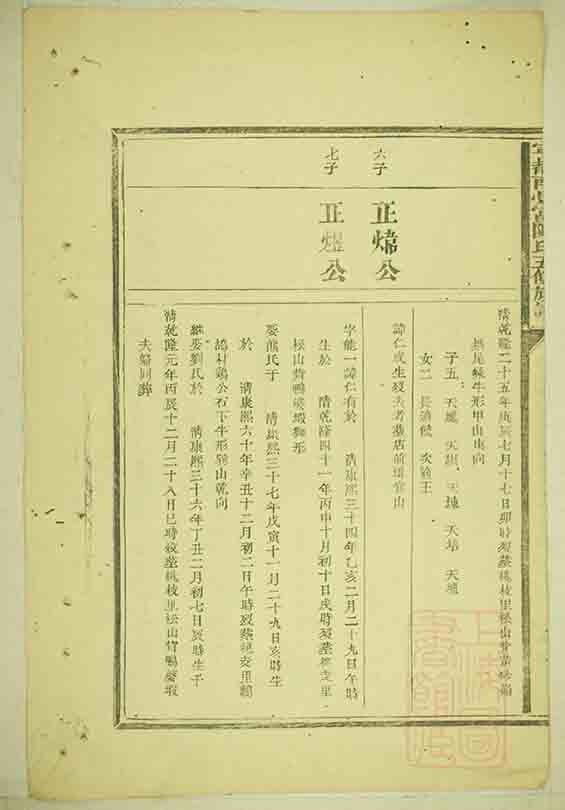 六子
正煒公
七子
正煜公
清乾隆二十五年庚辰七月十七日卯時歿墓桃枝里松山背
牛形甲山庚向
子五 天 天 天 天培 天
女二 長適饒 次適王
諱仁或生歿失考墓店前
字能一諱仁有於 清康熙三十四年乙亥二月二十九日午時
生於 清乾隆四十一年丙申十月初十日戌時歿墓桃枝里
松山背鴨婆獅形
娶熊氏于 清康熙三十七年戊寅十一月二十九日亥時生
於 清康熙六十年辛丑十二月初二日午時歿墓桃支里
村鷄公石下牛形 山 向
繼娶劉氏於 清康熙三十六年丁丑二月初七日辰時生于
清乾隆元年丙辰十二月二十八日巳時歿墓桃枝里松山背鴨婆
夫婦同葬